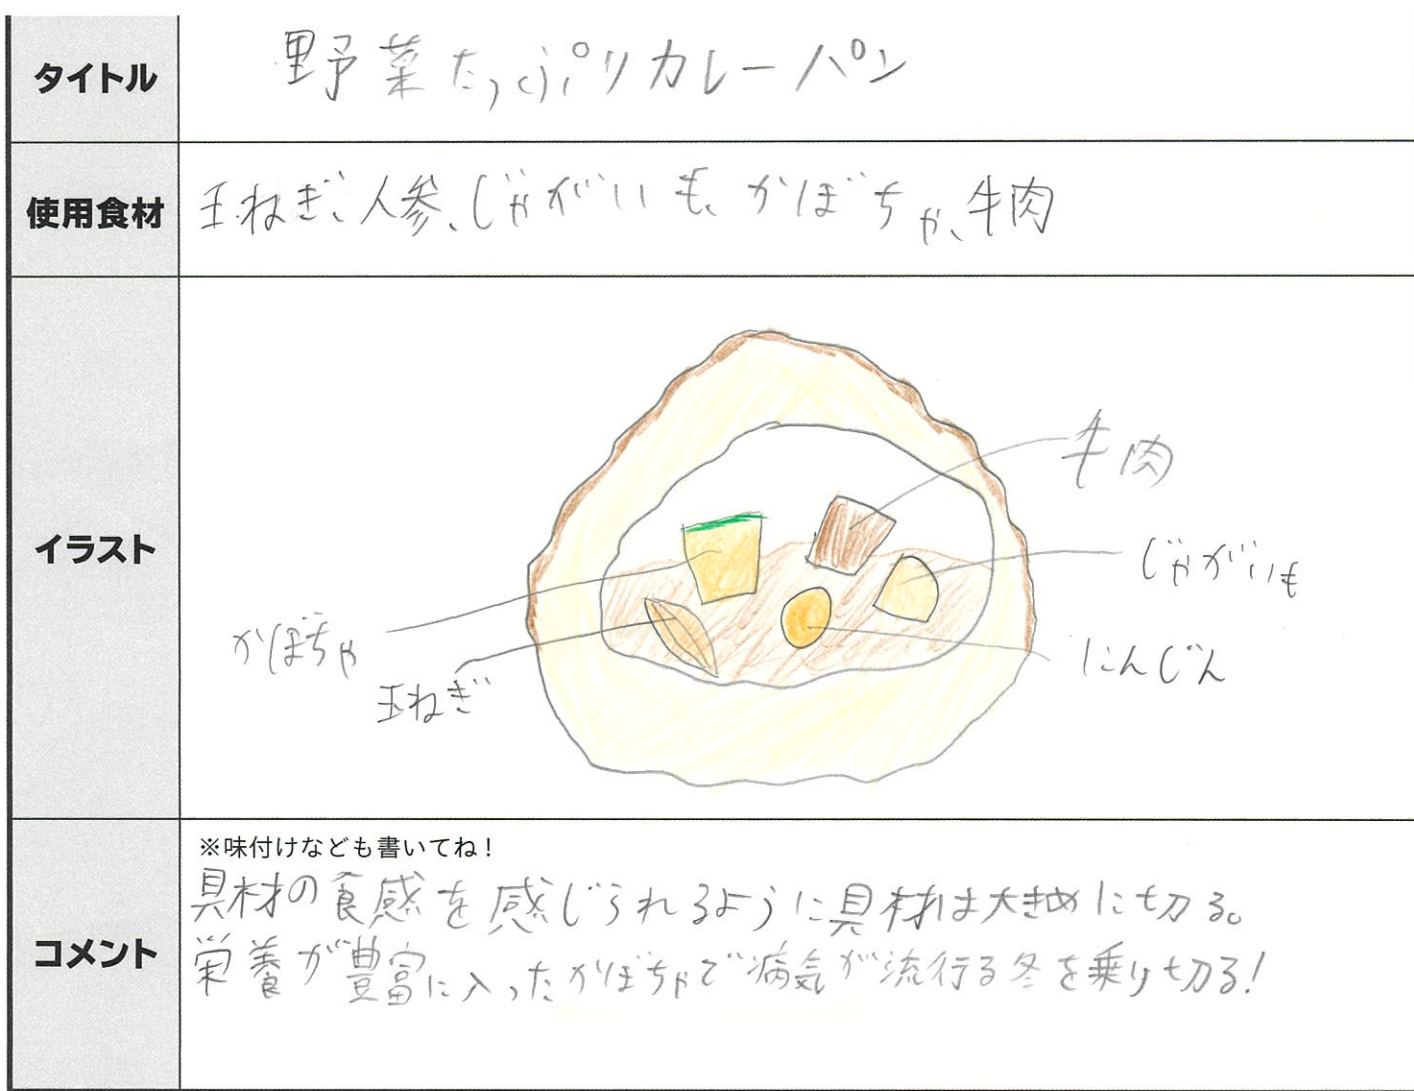 タイトル
野菜たっぷりカレーパン
使用食材
玉ねぎ、人参、じゃがいも、かぼちゃ、牛肉
イラスト
牛肉
じゃがいも
かぼちゃ
にんじん
玉ねぎ
コメント
※味付けなども書いてね！
具材の食感を感じられるように具材は大きめに切る。
栄養が豊富に入ったかぼちゃで病気が流行る冬を乗り切る！